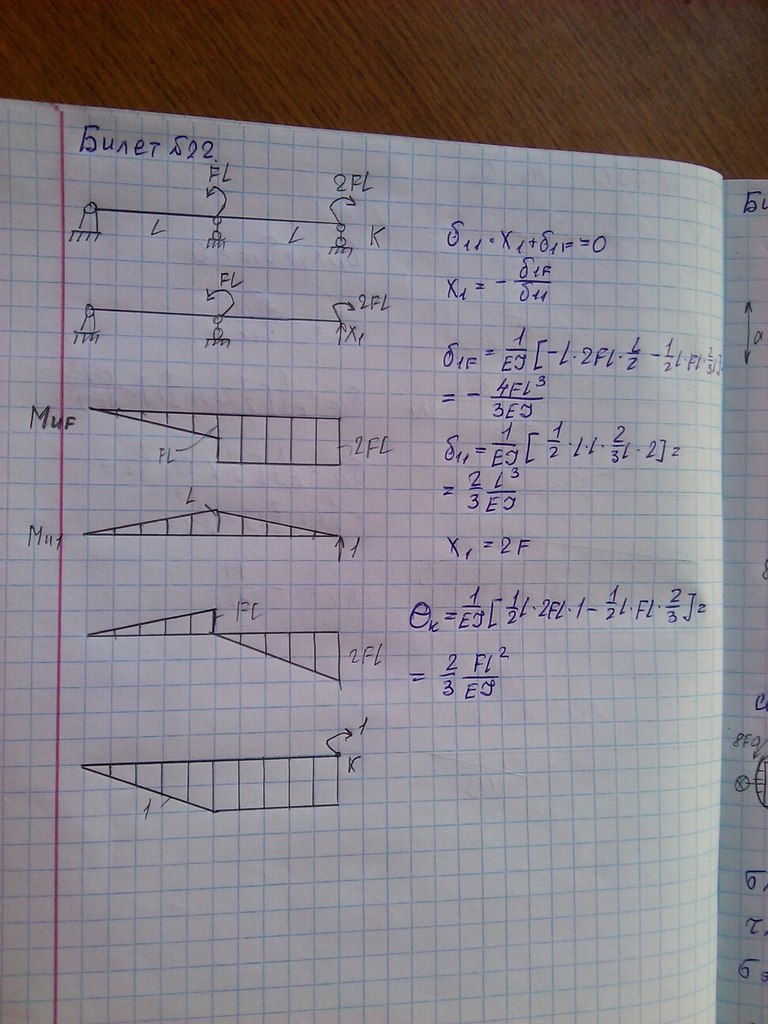 Билет Б22.
FL
2FL
L
L
K
FL
2FL
X₁
Mиf
FL
2FL
Mи1
L
1
FL
2FL
1
K
1
δ₁₁ · X₁ + δ₁F = 0
X₁ = - δ₁F / δ₁₁
δ₁F = 1/EJ [-l · 2Fl · l/2 - 1/2 l · Fl · 2/3 l] =
= - 4Fl³ / 3EJ
δ₁₁ = 1/EJ [1/2 · l · l · 2/3 l · 2] =
= 2/3 l³/EJ
X₁ = 2F
Θк = 1/EJ [1/2 l · 2Fl · 1 - 1/2 l · Fl · 2/3] =
= 2/3 Fl²/EJ
a
8Fa